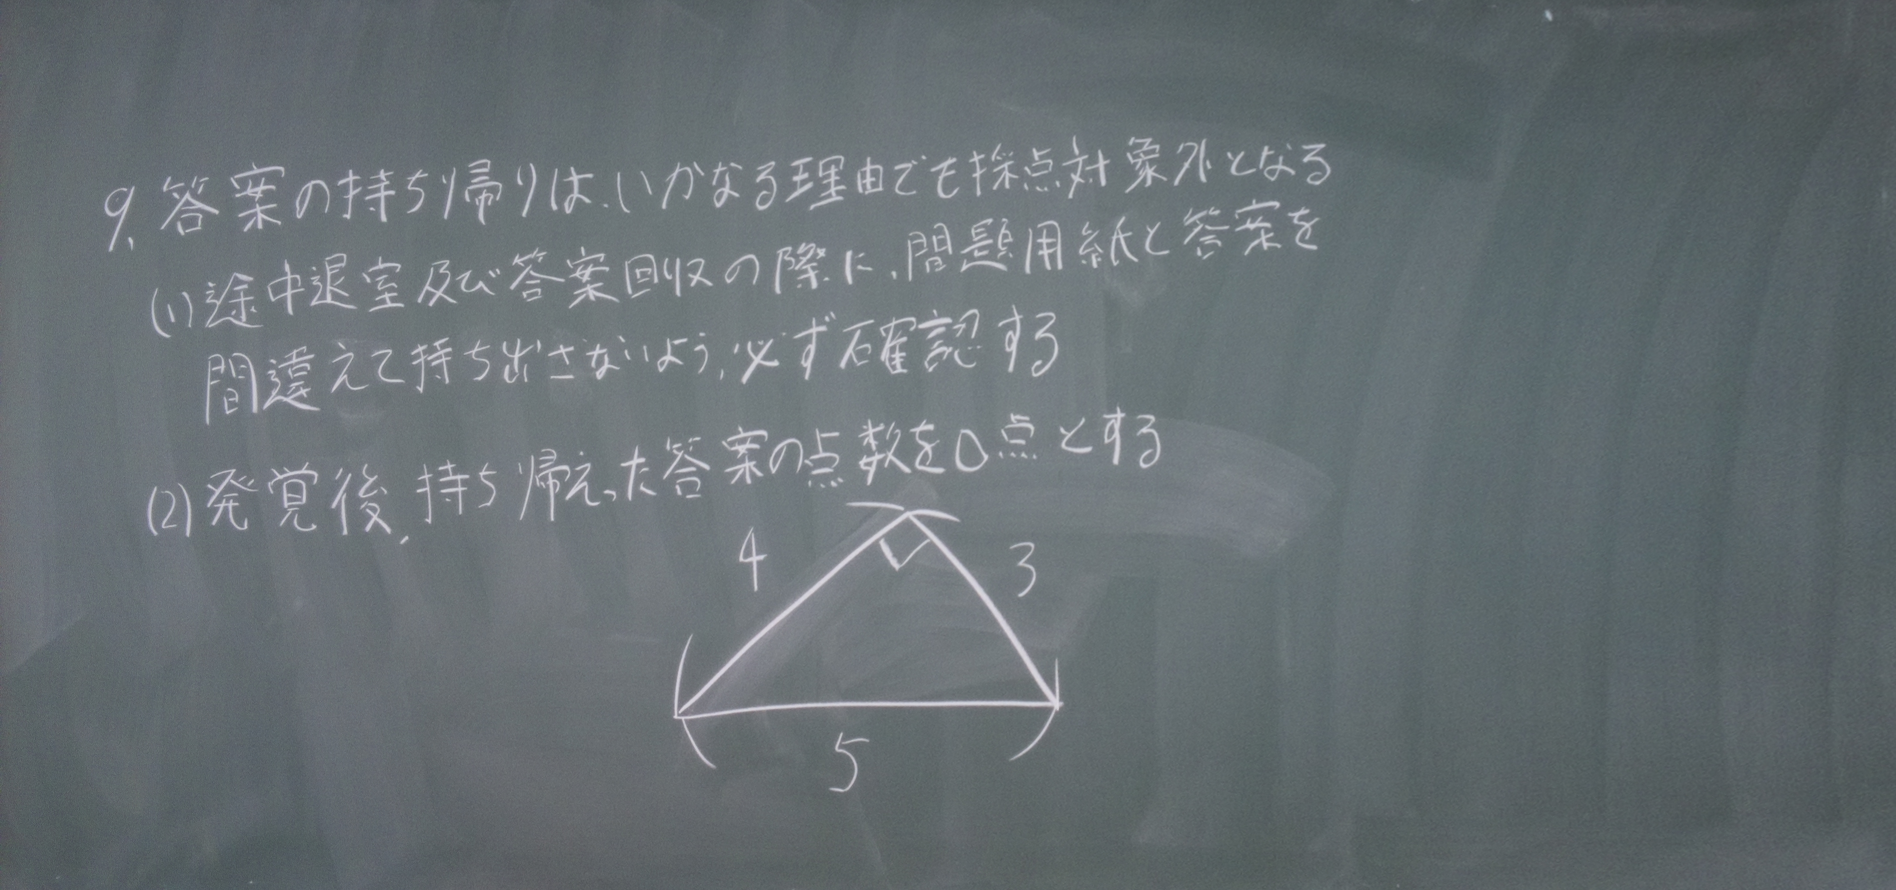 9. 答案の持ち帰りは、いかなる理由でも採点対象外となる
(1) 途中退室及び答案回収の際に、問題用紙と答案を
間違えて持ち出さないよう、必ず確認する
(2) 発覚後、持ち帰えった答案の点数を0点とする
4
3
5